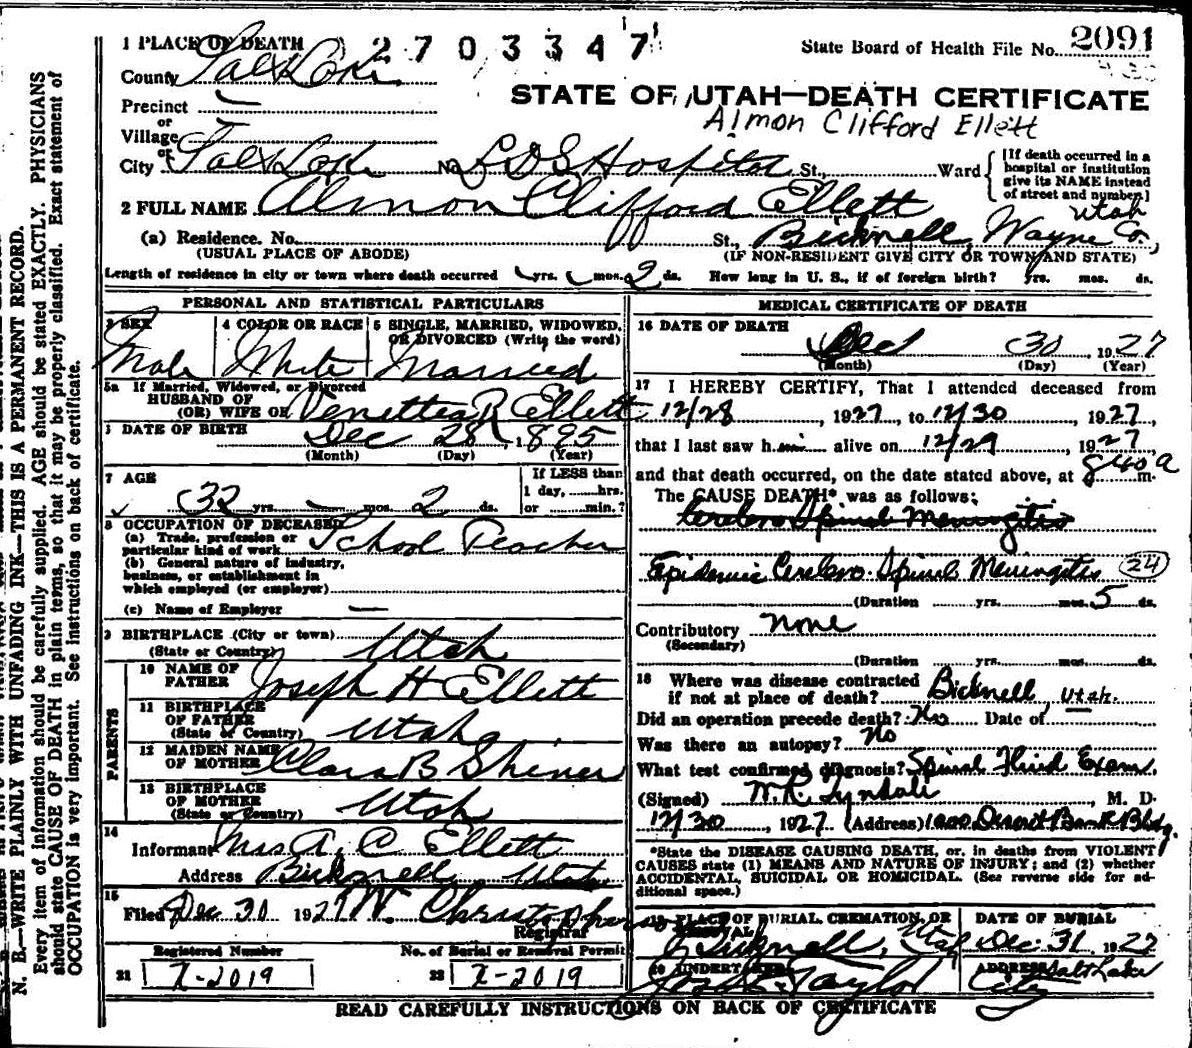 1 PLACE OF DEATH 2703347 State Board of Health File No. 2091
County Salt Lake
STATE OF UTAH—DEATH CERTIFICATE
Precinct
or
Almon Clifford Ellett
Village
or
City Salt Lake No. L D S Hospital St., Ward
[If death occurred in a hospital or institution give its NAME instead of street and number]
2 FULL NAME Almon Clifford Ellett
Utah
(a) Residence. No. St., Bicknell, Wayne Co.,
(USUAL PLACE OF ABODE) (IF NON-RESIDENT GIVE CITY OR TOWN AND STATE)
Length of residence in city or town where death occurred yrs. mos. 2 ds. How long in U. S., if of foreign birth? yrs. mos. ds.
PERSONAL AND STATISTICAL PARTICULARS
3 SEX 4 COLOR OR RACE 5 SINGLE, MARRIED, WIDOWED, OR DIVORCED (Write the word)
Male White Married
5a If Married, Widowed, or Divorced
HUSBAND OF
(OR) WIFE OF Venetta R Ellett
DATE OF BIRTH Dec 28, 1895
(Month) (Day) (Year)
7 AGE If LESS than
1 day, hrs.
32 yrs. mos. 2 ds. or min.?
8 OCCUPATION OF DECEASED
(a) Trade, profession or
particular kind of work School Teacher
(b) General nature of industry,
business, or establishment in
which employed (or employer)
(c) Name of Employer —
9 BIRTHPLACE (City or town)
(State or Country) Utah
PARENTS
10 NAME OF
FATHER Joseph H Ellett
11 BIRTHPLACE
OF FATHER
(State or Country) Utah
12 MAIDEN NAME
OF MOTHER Clara B Shiner
13 BIRTHPLACE
OF MOTHER
(State or Country) Utah
14
Informant Mrs A. C Ellett
Address Bicknell Utah
15
Filed Dec 30 1927 W. Christopherson
Registrar
Registered Number No. of Burial or Removal Permit
21 X-2019 22 X-2019
MEDICAL CERTIFICATE OF DEATH
16 DATE OF DEATH
Dec 30, 1927
(Month) (Day) (Year)
17 I HEREBY CERTIFY, That I attended deceased from
12/28, 1927, to 12/30, 1927,
that I last saw him alive on 12/29, 1927
and that death occurred, on the date stated above, at 840 a m.
The CAUSE DEATH* was as follows:
Cerebro Spinal Meningitis
Epidemic Cerebro Spinal Meningitis 24
(Duration yrs. mos. 5 ds.
Contributory none
(Secondary)
(Duration yrs. mos. ds.
18 Where was disease contracted
if not at place of death? Bicknell, Utah.
Did an operation precede death? No Date of
Was there an autopsy? No
What test confirmed diagnosis? Spinal Fluid Exam.
(Signed) W.R. Tyndale, M. D.
12/30, 1927 (Address) 1000 Deseret Bank Bldg.
*State the DISEASE CAUSING DEATH, or, in deaths from VIOLENT
CAUSES state (1) MEANS AND NATURE OF INJURY; and (2) whether
ACCIDENTAL, SUICIDAL OR HOMICIDAL. (See reverse side for ad-
ditional space.)
19 PLACE OF BURIAL, CREMATION, OR REMOVAL DATE OF BURIAL
Bicknell, Utah Dec. 31 1927
20 UNDERTAKER ADDRESS Salt Lake
Taylor City
READ CAREFULLY INSTRUCTIONS ON BACK OF CERTIFICATE
N. B.—WRITE PLAINLY WITH UNFADING INK—THIS IS A PERMANENT RECORD.
Every item of information should be carefully supplied. AGE should be stated EXACTLY. PHYSICIANS
should state CAUSE OF DEATH in plain terms, so that it may be properly classified. Exact statement of
OCCUPATION is very important. See instructions on back of certificate.